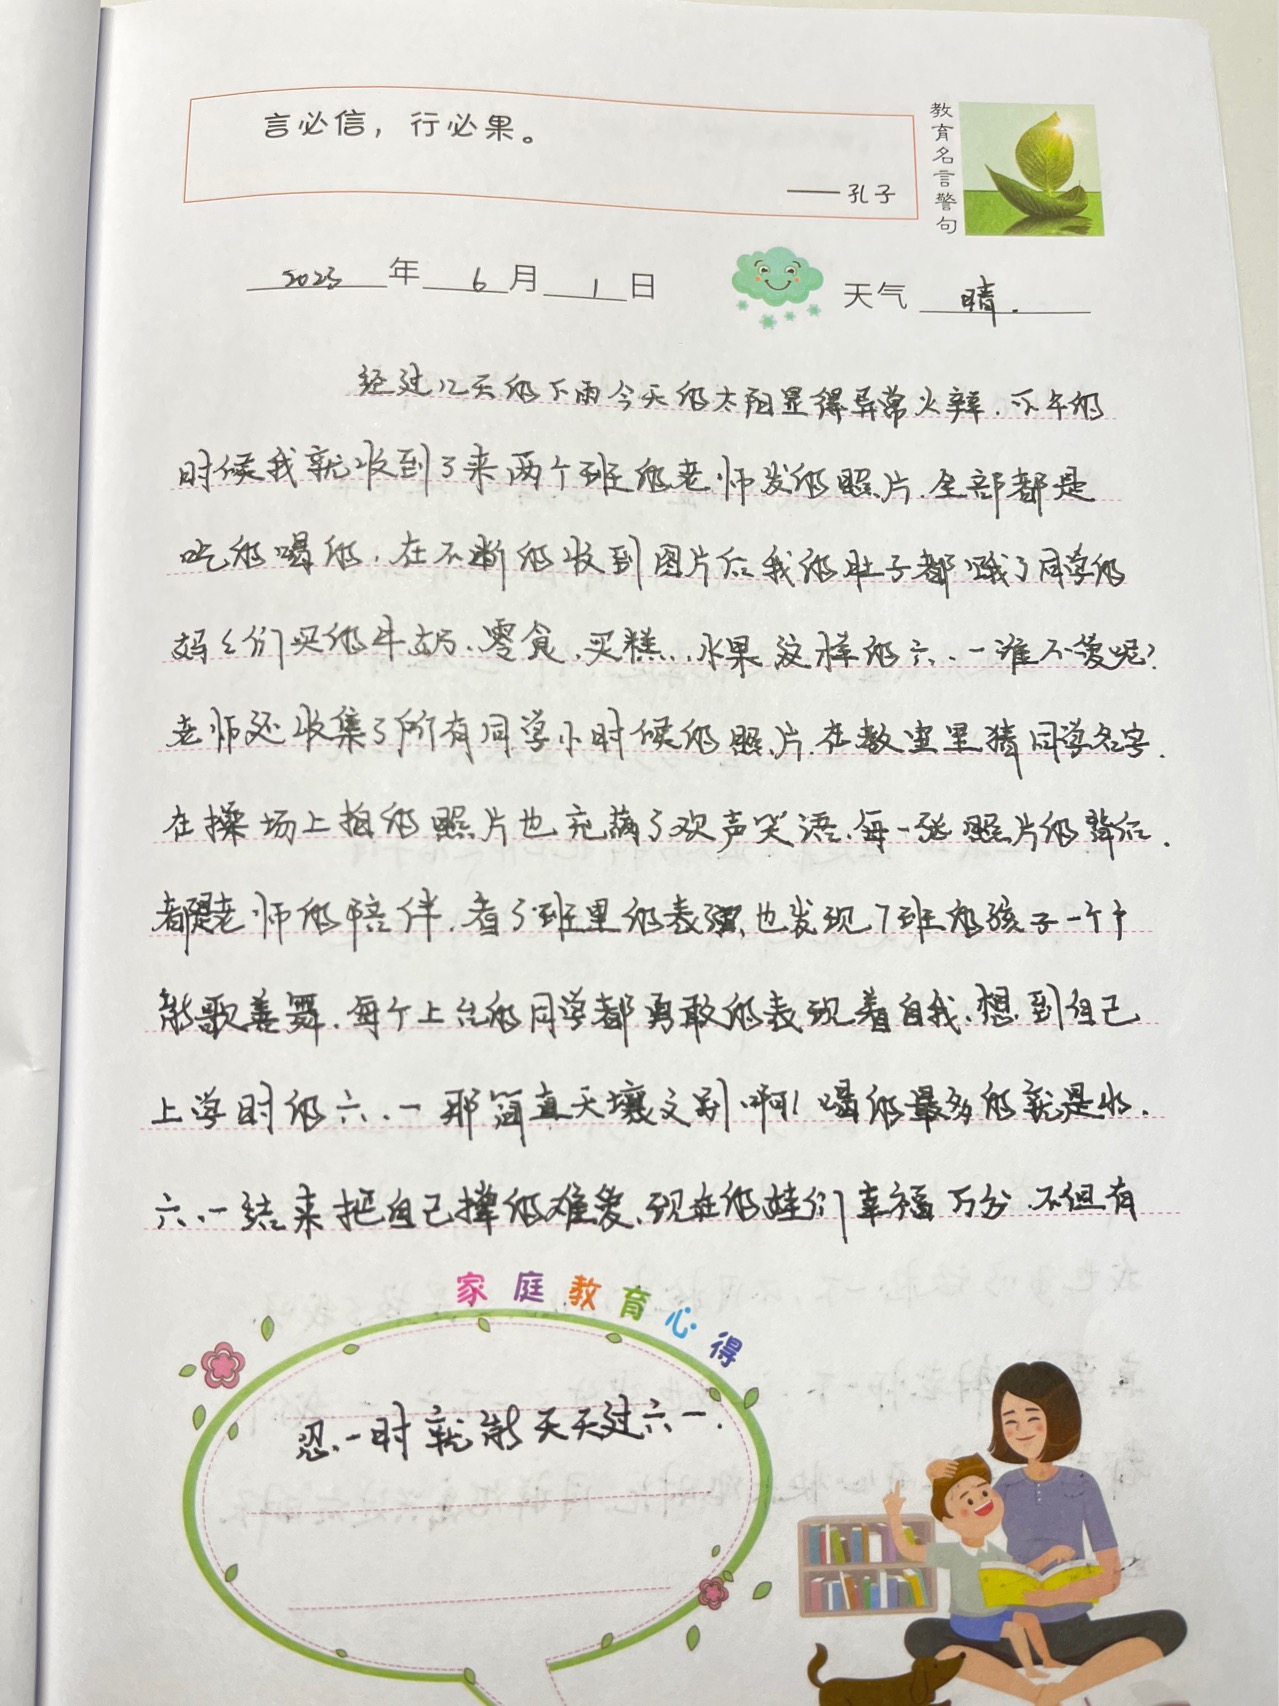 言必信，行必果。
——孔子
教育名言警句
2023年6月1日
天气 晴.
经过几天的下雨今天的太阳显得异常火辣.下午的
时候我就收到了来两个班的老师发的照片.全部都是
吃的喝的.在不断的收到图片后我的肚子都饿了同学的
妈々们买的牛奶、零食、买糕、水果这样的六.一谁不爱呢?
老师还收集了所有同学小时候的照片.在教室里猜同学名字.
在操场上拍的照片也充满了欢声笑语.每一张照片的背后.
都是老师的陪伴.看了班里的表演,也发现7班的孩子一个个
能歌善舞.每个上台的同学都勇敢的表现着自我.想到自己
上学时的六.一那简直天壤之别啊!喝的最多的就是水.
六.一结来把自己撑的难受.现在的娃们幸福万分.不但有
家庭教育心得
忍一时就能天天过六一.